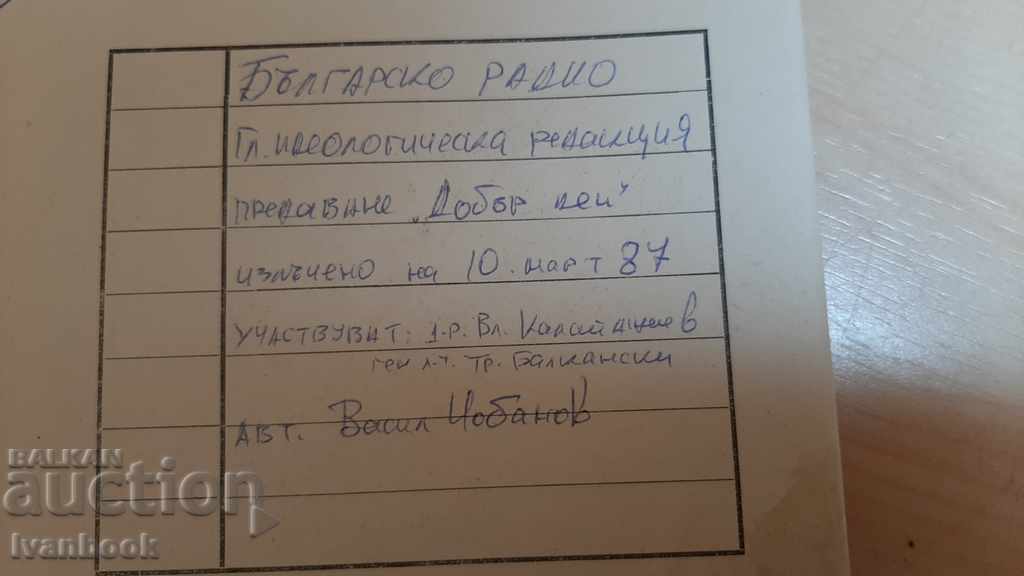 Българско радио
Гл. идеологическа редакция
предаване "Добър ден"
излъчено на 10. март 87
участвуват: д-р. Вл. Калайджиев
ген л-т. Тр. Балкански
авт. Васил Чобанов
BALKAN
auction
Ivanbook